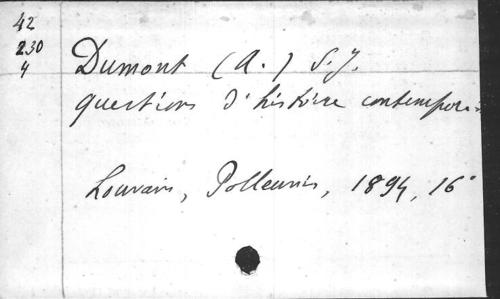 42
230
4
Dumont (A.) S.J.
questions d'histoire contempor
Louvain, Polleunis, 1894, 16°